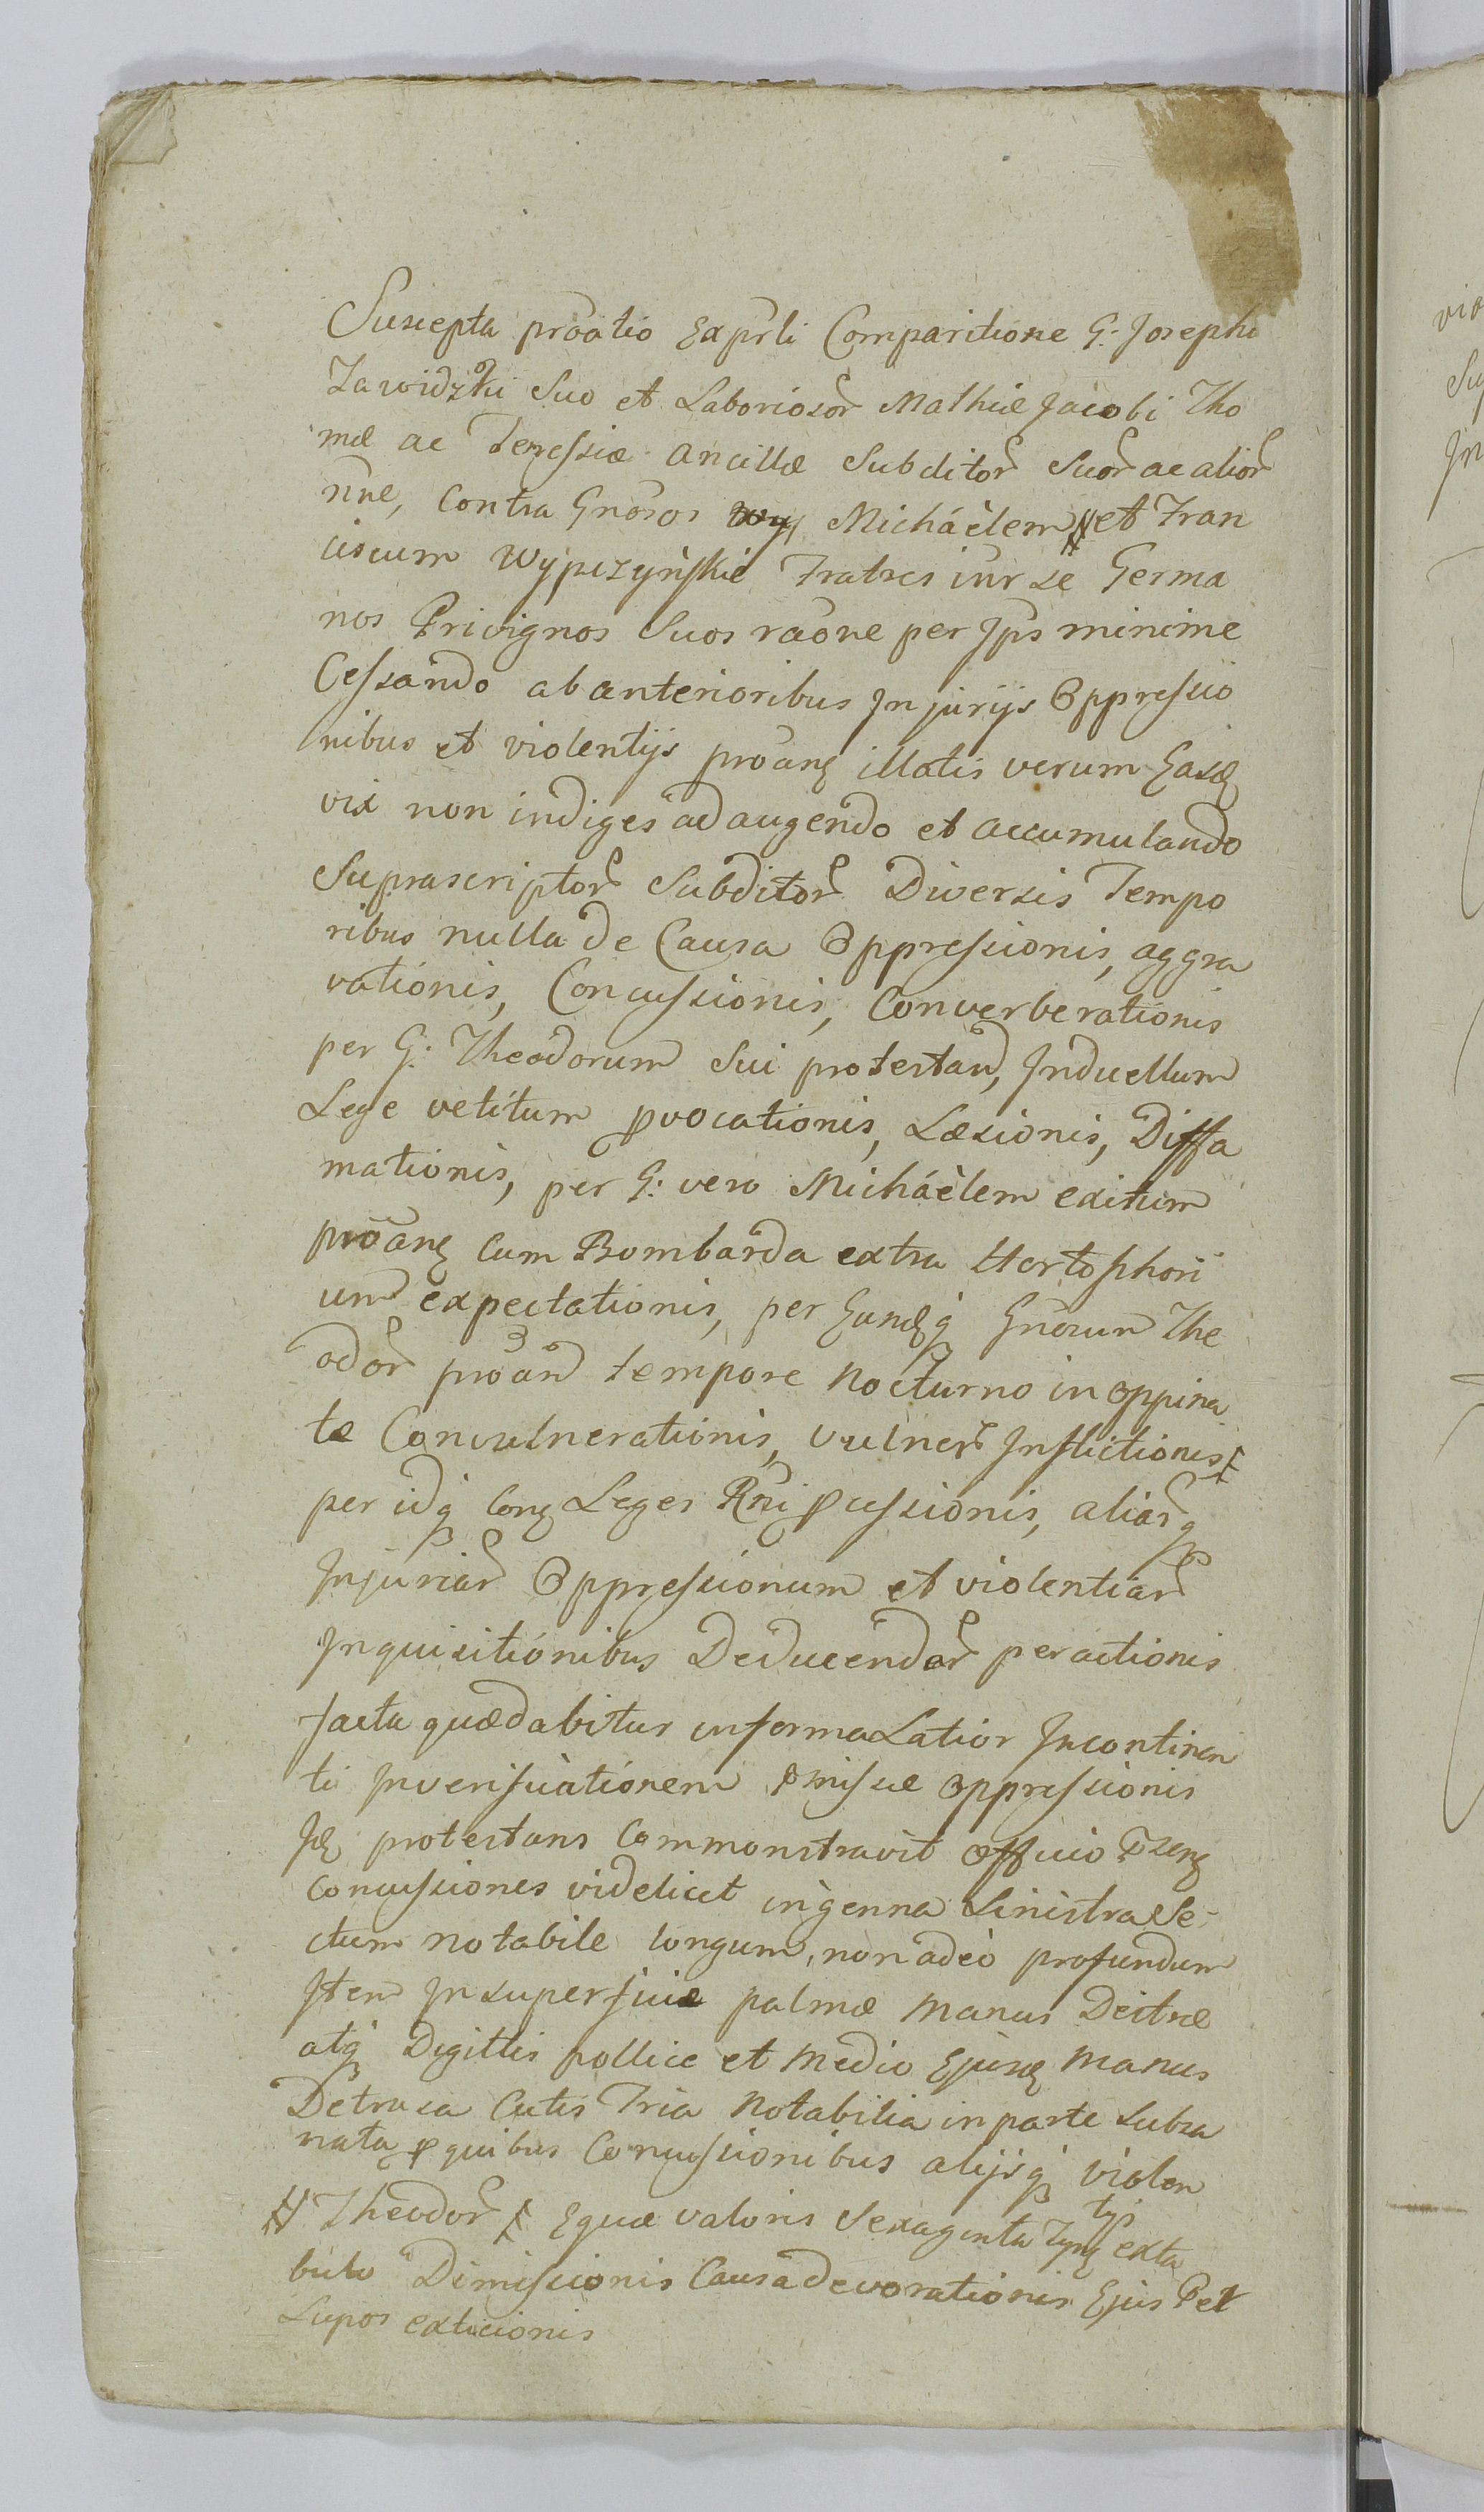 Suscepta prõatio Exprli Comparitione G: Josephi
Zawidzki Suo et Laboriosor̃ Mathiæ Jacobi Tho
mæ ac Teressiæ Ancillæ Subditor̃ Suor̃ ac alior̃
nñe, Contra Gnõsos Micháèlem # et Fran
ciscum Wypczyńskie Fratres inr̃ se Germa
nos Privignos Suos raõne per Jps minime
Cessando ab anterioribus Injurijs Oppressio
nibus et violentijs prõanꝫ illatis verum Easdꝫ
vix non indiges adaugendo et accumulando
Suprascriptor̃ Subditor̃ Diversis Tempo
ribus nulla de Causa Oppressionis, aggra
vationis, Concussionis, Converberationis
per G: Theodorum Sui protestand, Induellum
Lege vetitum ꝓvocationis, Læsionis, Diffa
mationis, per G: vero Micháèlem exitum
prõanꝫ Cum Bombarda extra Hortophori
um expectationis, per Eundꝫq Gnõsum The
odor̃ prõand tempore Nocturno inoppina
tæ Convulnerationis, Vulner̃ Inflictionis ƒ
per idq Conꝫ Leges Rñi ꝑcussionis, aliar̃q
Injuriar̃ Oppressionum et violentiar̃
Inquisitionibus Deducendar̃ peractionis
facta quæ dabitur in forma Latior Incontinen
ti In verificationem p̃missæ oppressionis
Jdꝫ protestans Commonstravit officio p̃senꝫ
Concussiones videlicet in genna Sinistra Se-
ctum notabile longum, non adeò profundum
Item In superficie palmæ Manus Dextræ
atq Digittis pollice et Medio Ejusdꝫ Manus
Detrusa Cutis Tria Notabilia in parte Subsa
nata ꝓ quibus Concussionibus alijsq violen
tijs
# Theodor̃ ƒ Equæ valoris Sexaginta Tynꝫ exta
bulo Dimissionis Causa devorationis Ejus Per
Lupos